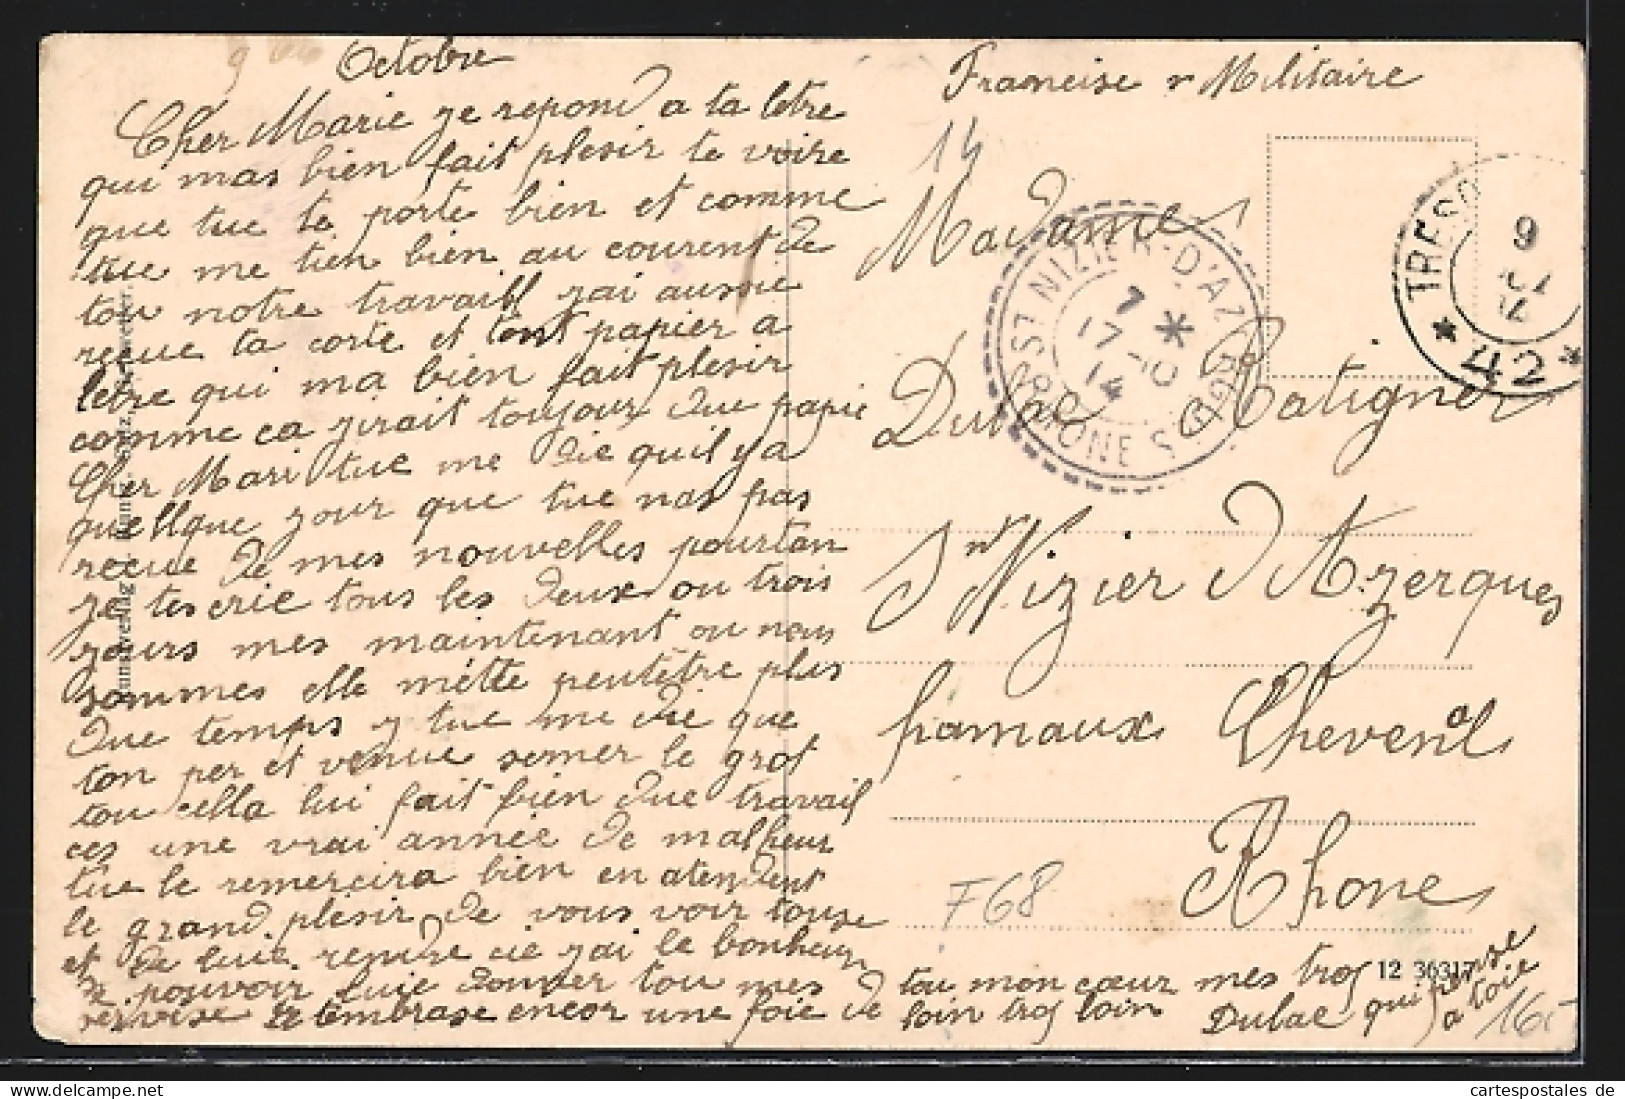 9 Octobre
Cher Marie je repond a ta letre
qui mas bien fait plesir te voire
que tue te porte bien et comme
tue me tien bien au courent de
tou notre travaill jai aussie
recue ta corte et tont papier a
letre qui ma bien fait plesir
comme ca jirait toujour due papie
Cher Mari tue me die quil ya
quellque jour que tue nas pas
recue de mes nouvelles pourtan
je tes crie tous les deux ou trois
jours mes maintenant ou nous
sommes elle mette peutetre plus
due temps y tue me die que
ton per et venue semer le grot
tou cella lui fait bien due travail
ces une vrai année de malheur
tue le remercira bien en atendent
le grand plesir de vous voir touse
et de luie rendre cie jai le bonheur
pouvoir luie donner tou mes
servise Je tembrase encor une foie de
tou mon cœur mes trop
loin trop loin Dulac qui pense
a toie
Franceise r Militaire
14
Madame
Dulac Ratigner
St Nizier d'Azergques
hamaux Chevenal
Rhone
F68
165
ST NIZIER-D'AZERGUES
RHONE
7
17-10
14
TRESO
9
14
* 42 *
12 36317
cartespostales de